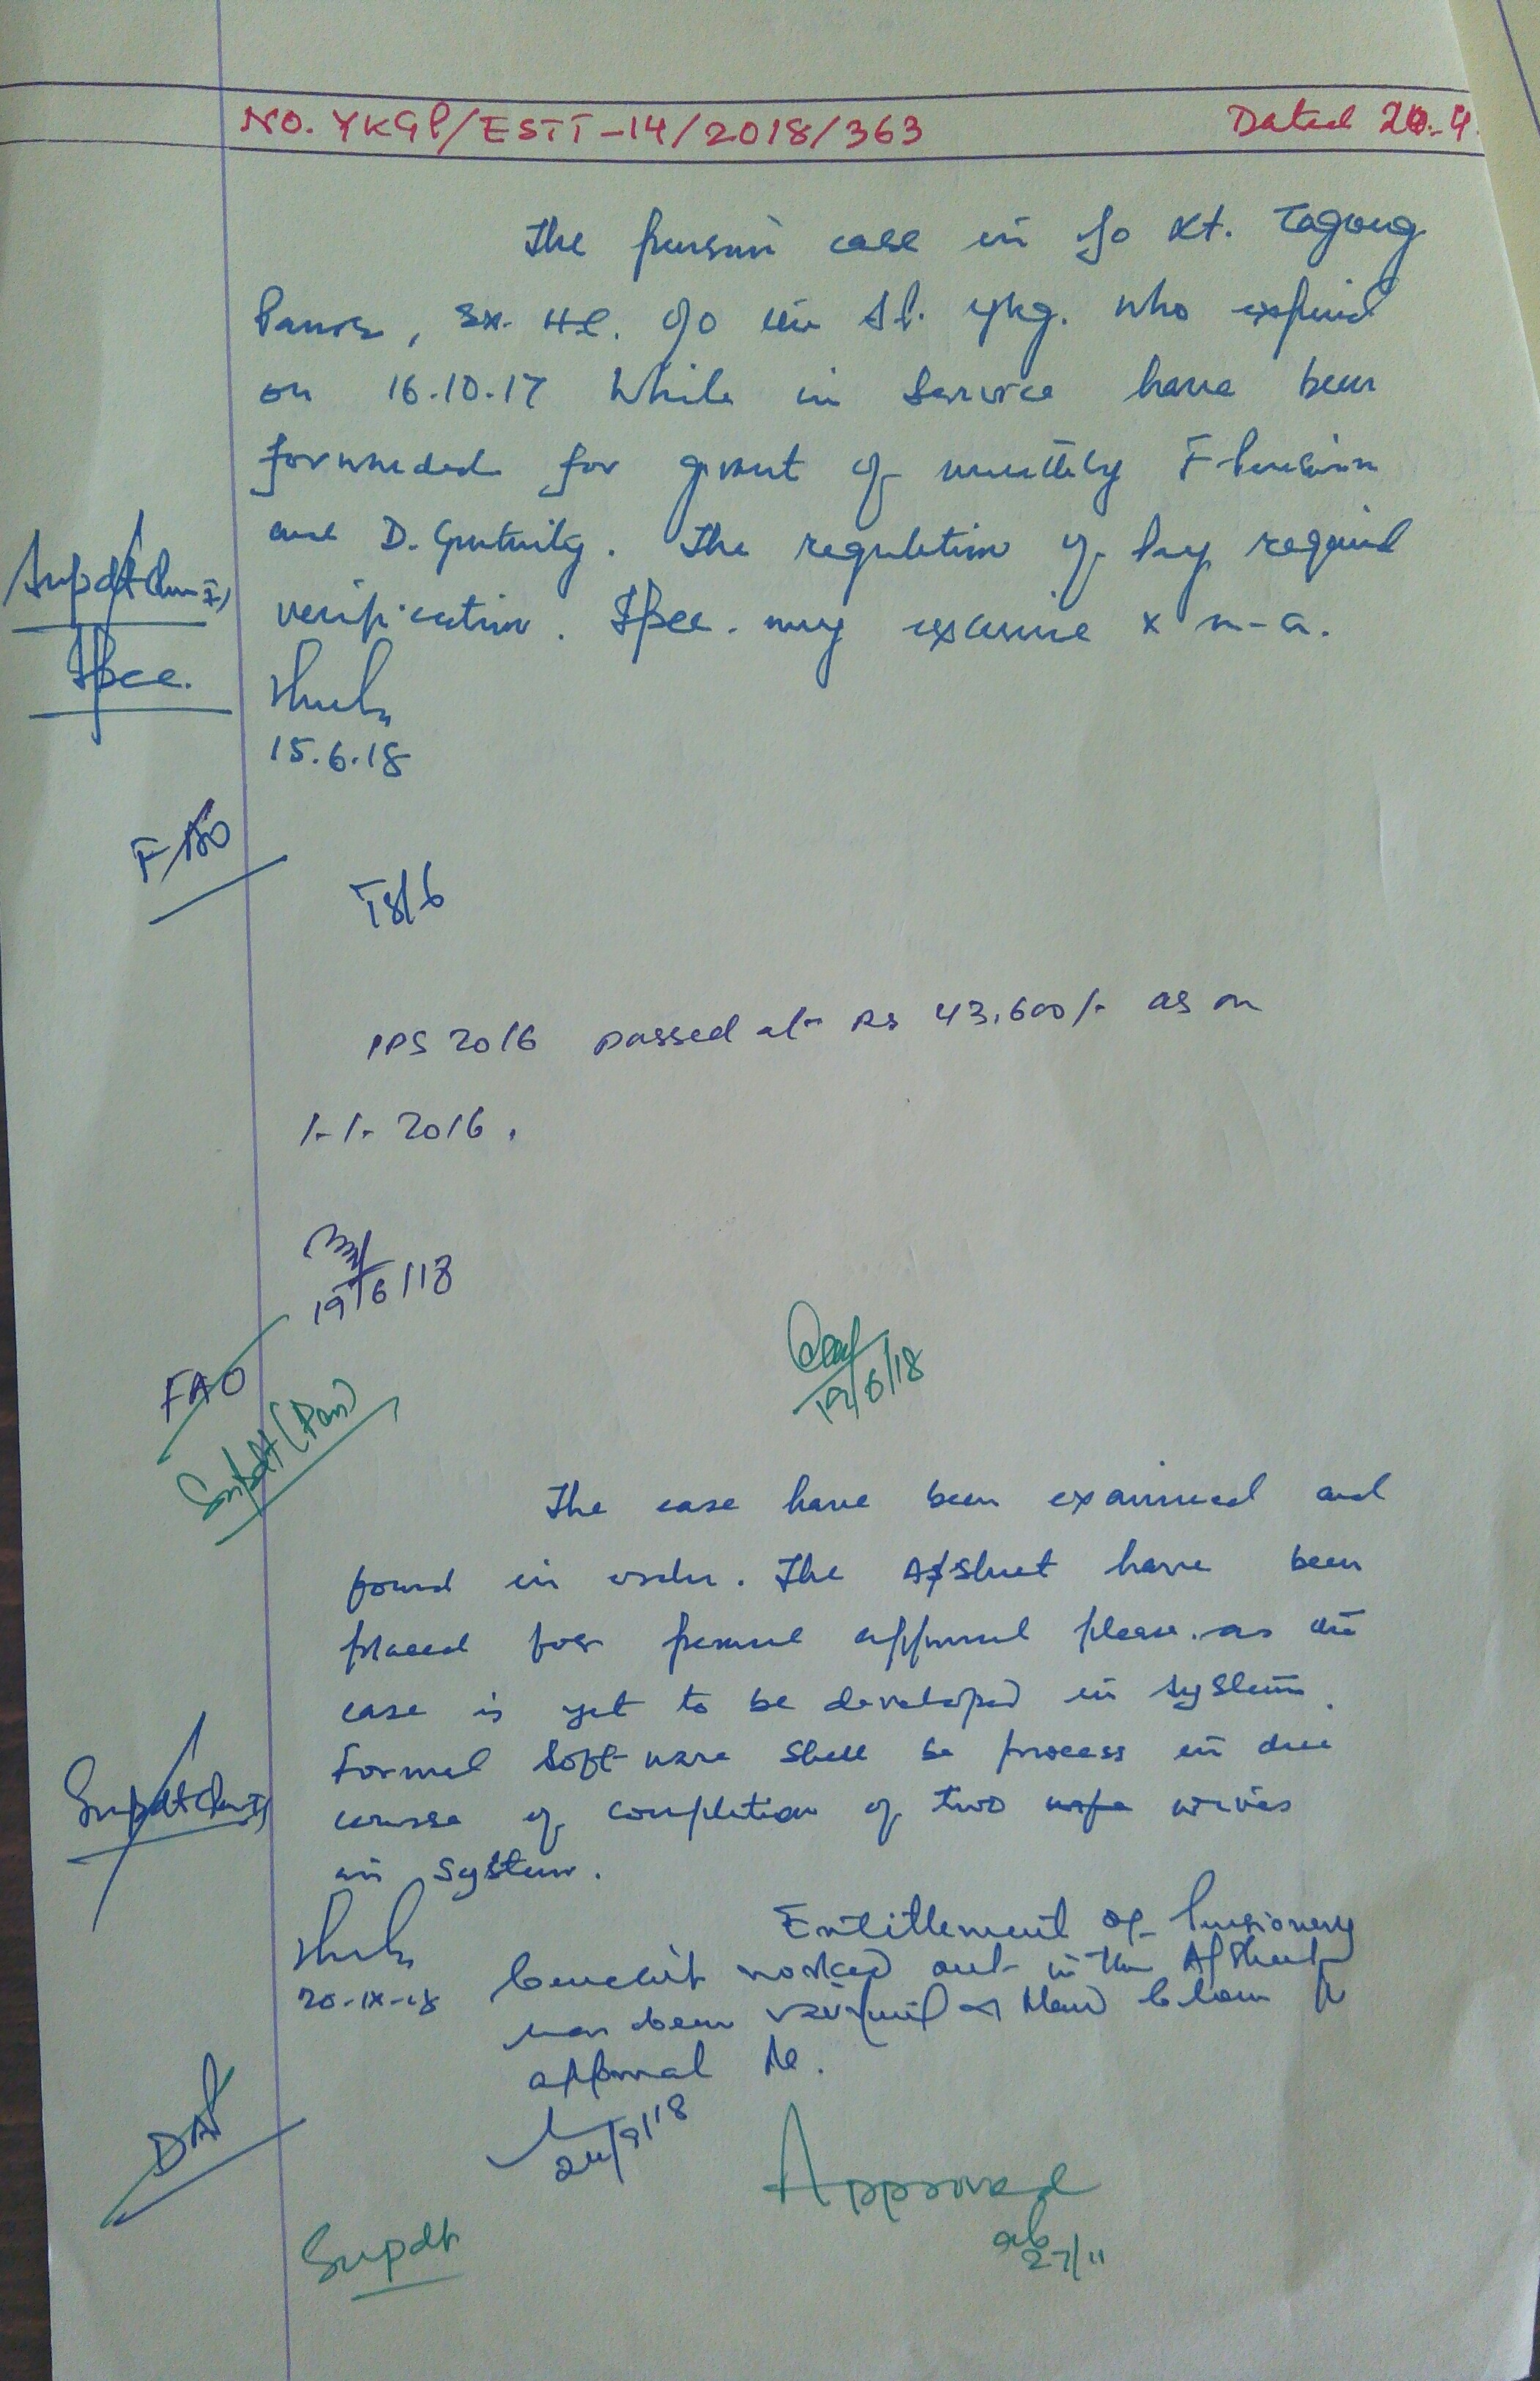 NO. YKGP/ESTT-14/2018/363 Dated 20.4
The pension case in f/o Kt. Tagong
, Ex. HC. O/O the S.P. Ykg. who expired
on 16.10.17 While in Service have been
forwarded for grant of monthly F Pension
and D. Gratuity. The regulation of pay required
verification. IPCC. may examine x n-a.
Supdt (Pen-I)
IPCC.
15.6.18
FAO
18/6
IPS 2016 passed at Rs 43,600/- as on
1-1-2016.
19/6/18
FAO
19/6/18
Supdt (Pen)
The case have been examined and
found in order. The A/Sheet have been
placed for approval please. as the
case is yet to be developed in system.
Formal Soft ware shall be process in due
course of completion of two wives
in System.
Supdt (Pen-I)
20-IX-18
Entitlement of Pensionery
benefit worked out in the A/Sheet
has been verified
approval
24/9/18
DAP
Approved
27/11
Supdt